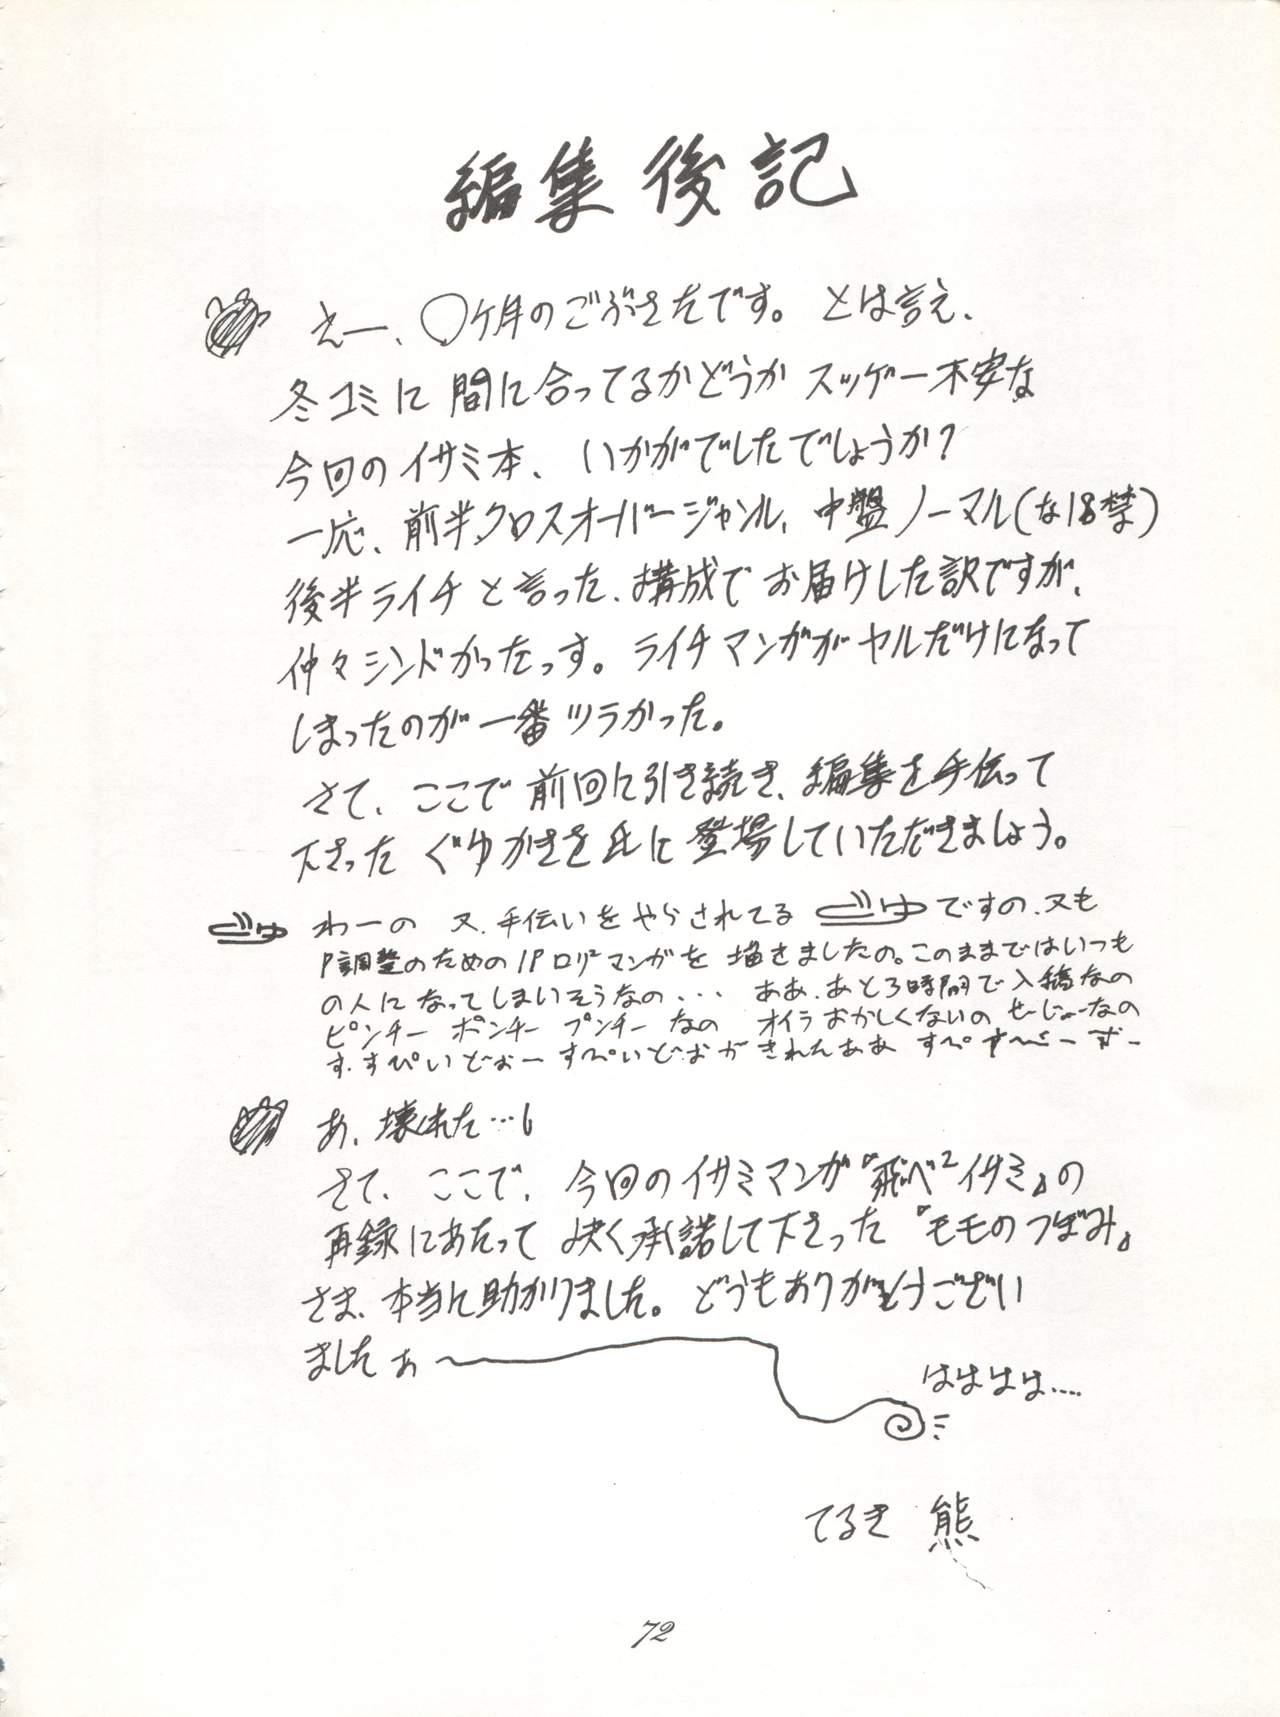 編集後記
えー、〇ヶ月のごぶさたです。とは言え、
冬コミに間に合ってるかどうかスッゲー不安な
今回のイサミ本、いかがでしたでしょうか？
一応、前半クロスオーバージャンル、中盤ノーマル(な18禁)
後半ライチと言った、構成でお届けした訳ですが、
仲々シンドかったっす。ライチマンガがヤルだけになって
しまったのが一番ツラかった。
さて、ここで前回に引き続き、編集を手伝って
下さったぐゆかきを氏に登場していただきましょう。
わーの 又、手伝いをやらされてる ぐゆですの、又も
P調整のための1Pロリマンガを描きましたの。このままではいつも
の人になってしまいそうなの・・・ ああ、あと3時間で入稿なの
ピンチー ポンチー プンチーなの オイラおかしくないの せーじょーなの
す、すぴいどぉー すぺいどおがきれたああ すぺ
あ、壊れた…
さて、ここで、今回のイサミマンガ『飛べ2イサミ』の
再録にあたって快く承諾して下さった『モモのつぼみ』
さま、本当に助かりました。どうもありがとうござい
ましたぁ〜
はははは….
てるき熊
72